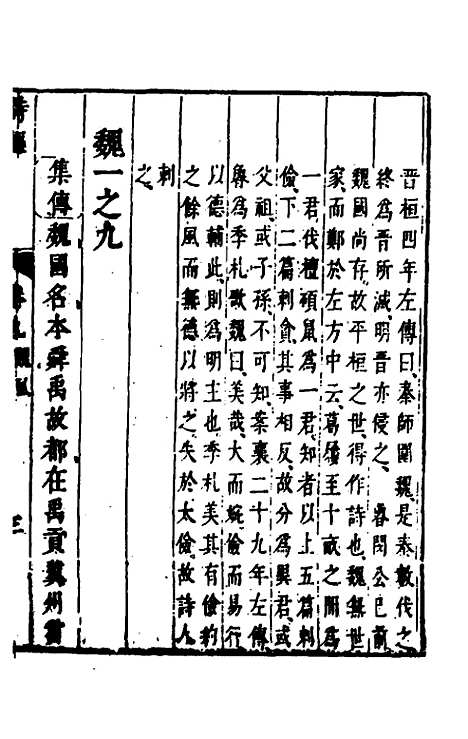 晉桓四年左傳曰秦師圍魏是秦數伐之
終爲晉所滅明晉亦侵之魯閔公已前
魏國尚存故平桓之世得作詩也魏無世
家而鄭於左方中云葛屨至十畝之閒爲
一君伐檀碩鼠爲一君知者以上五篇刺
儉下二篇刺貪其事相反故分爲異君或
父祖或子孫不可知案襄二十九年左傳
魯爲季札歌魏曰美哉大而婉儉而易行
以德輔此則爲明主也季札美其有儉約
之餘風而無德以將之失於太儉故詩人
刺
之
魏一之九
集傳魏國名本舜禹故都在禹貢冀州雷
詩
卷九
三